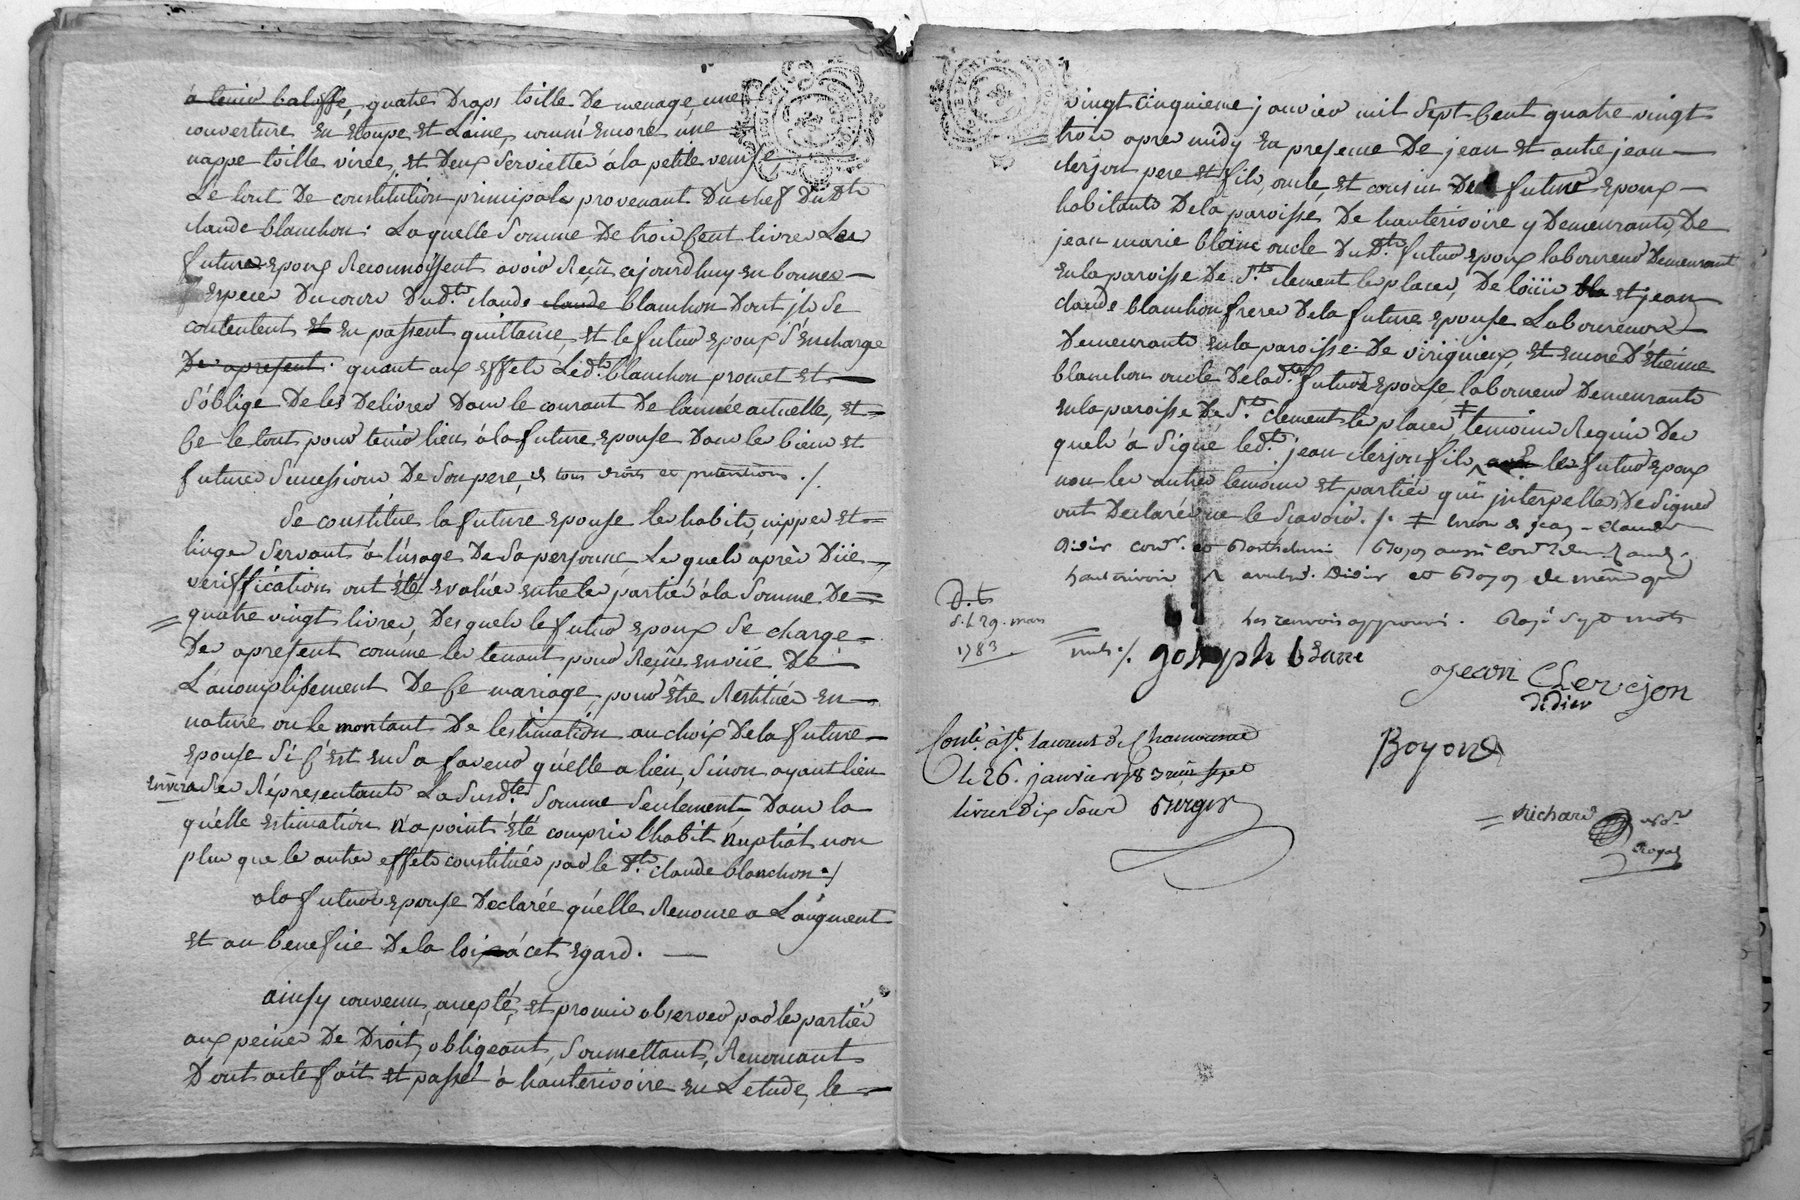 a tenir baliffé, quatre Draps toille De menage, une
couverture En étoupe Et Laine, comm'encore une
nappe toille virée, Et Deux Serviettes à la petite venise,
Le tout De constitution principale provenant Du chef Dud.t
claude blanchon: Laquelle Somme De trois Cent livres Les
futurs Epoux Reconnoissent avoir Reçû cejourd'huy En bonnes
Especes Du cours Dud.t claude claude blanchon Dont jls Se
contentent Et En passent quittance, Et le futur Epoux S'Encharge
De's apresent: quant aux Effets Led.t blanchon promet Et
S'oblige De les Delivrer Dans le courant De lannée actuelle, Et
Ce le tout pour tenir lieu à la future Epouse Dans les biens Et
future Sucession De Son pere, et tous droits et pretentions ./.
Se constitüe la future Epouse les habits, nippes Et
linges Servants à l'usage De Sa personne Lesquels après Düe
veriffication ont été Evalués Entre les partiés à la Somme De
quatre vingt livres, Desquels le futur Epoux Se charge
Des apresent comme les tenant pour Reçûs Envüe De
L'acomplissement De Ce mariage, pour Être Restitués En
nature ou le montant De lestimation au choix De la future
Epouse Si C'est En Sa faveur qu'elle a lieu, Sinon ayant lieu
Envers Ses Répresentants La Susd.te Somme Seulement, Dans la
quelle estimation n'a point été compris l'habit nuptial non
plus que les autres effets constitués par le d.t claude blanchon ./
a la future epouse Declarée qu'elle Renonce a L'augment
Et au benefice De la loi à cet Egard.
ainsy convenu, accepté, Et promis observer par les partiés
aux peines De Droit, obligeant, Soumettant, Renonçant
Dont acte fait Et passé à hauterivoire En L'etude, le
vingt cinquieme janvier mil Sept Cent quatre vingt
trois apres midy En presence De jean Et autre jean
clerjon pere Et fils, oncle, Et cousin De futur Epoux
habitants De la paroisse De hauterivoire y Demeurants, De
jean marie blanc oncle Du d.t futur epoux laboureur Demeurant
En la paroisse De S.t clement les places, De loüis bla et jean
claude blanchon freres De la future Epouse Laboureurs
Demeurants En la paroisse De virigneux, Et Encore D'Etienne
blanchon oncle De lad.te future Epouse laboureur Demeurants
En la paroisse De S.t clement les places ‡ temoins Requis Des
quels à Signé led.t jean clerjon fils, avec les futur Epoux
non les autres temoins Et partiés qui jnterpellés De Signer
ont Declarés ne le Sçavoir ./. ‡ Encor de jean-claude
didier cord.r et Barthelemi Boyon aussi cord.r dem.t aud.
hauterivoire didier et Boyon de même que
Les renvois approuvé. Rayé Sept mots
nuls ./. joseph blanc
jean Clerjon
didier
Boyond
D.t
d.l 29. mars
1783
Cont.é à S.t laurent de Chamousset
le 26. janvier 1783 reçu sept
livres dix Sous Burger
Richard
no.re
Royal